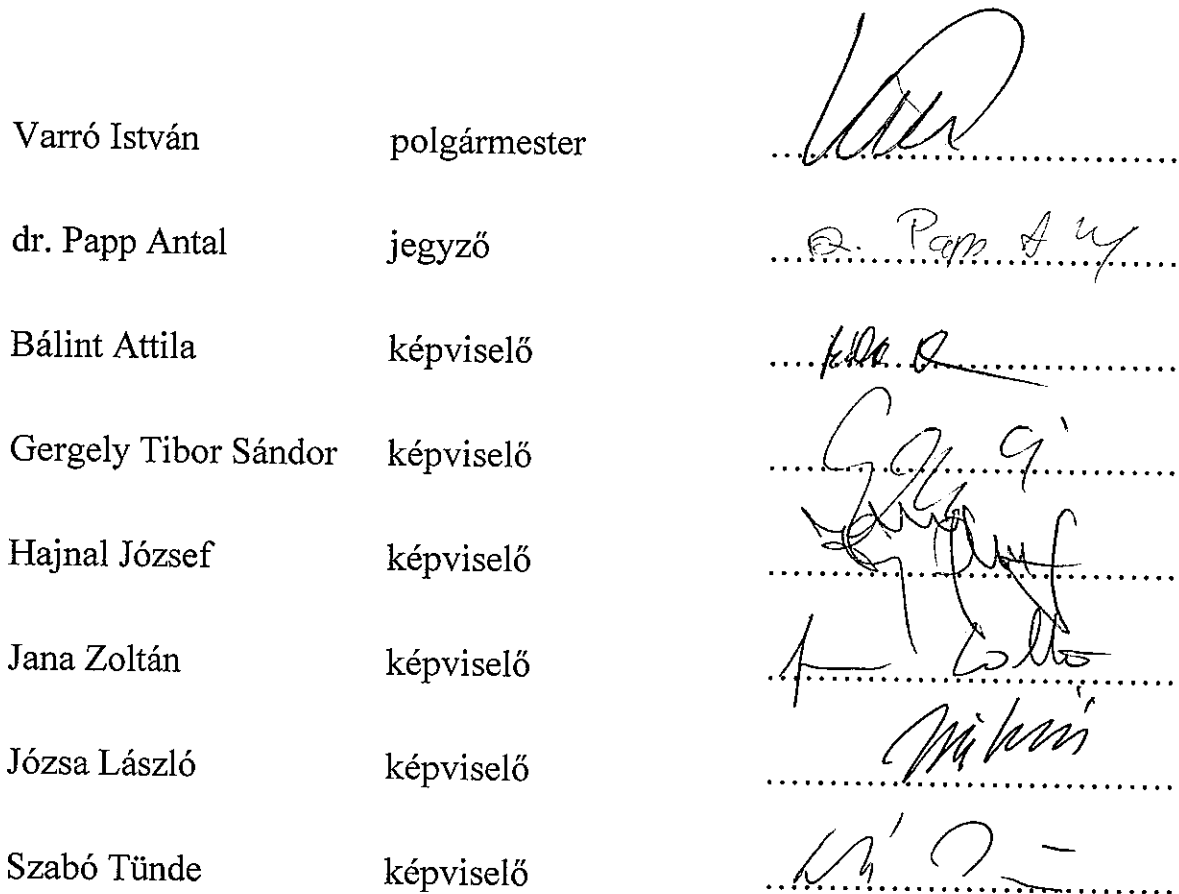 Varró István polgármester ..............................
dr. Papp Antal jegyző ..............................
Bálint Attila képviselő ..............................
Gergely Tibor Sándor képviselő ..............................
Hajnal József képviselő ..............................
Jana Zoltán képviselő ..............................
Józsa László képviselő ..............................
Szabó Tünde képviselő ..............................